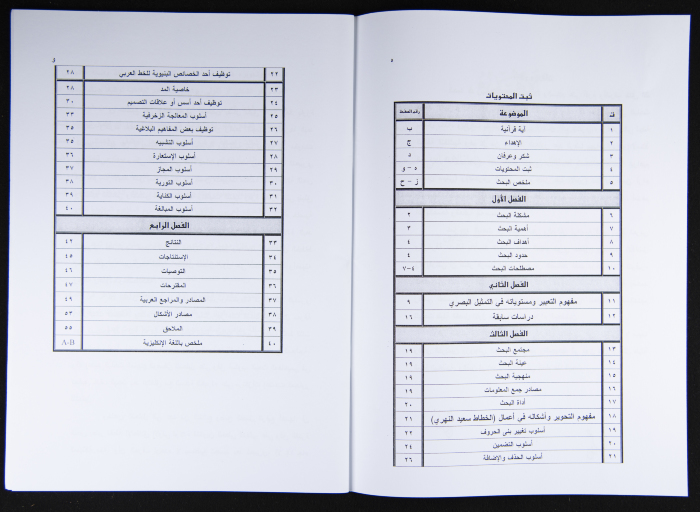 ثبت المحتويات
ت الموضوعة رقم الصفحة
١ آية قرآنية ب
٢ الإهداء ج
٣ شكر وعرفان د
٤ ثبت المحتويات ه – و
٥ ملخص البحث ز – ح
الفصل الأول
٦ مشكلة البحث ٢
٧ أهمية البحث ٣
٨ أهداف البحث ٤
٩ حدود البحث ٤
١٠ مصطلحات البحث ٤-٧
الفصل الثاني
١١ مفهوم التعبير ومستوياته في التمثيل البصري ٩
١٢ دراسات سابقة ١٦
الفصل الثالث
١٣ مجتمع البحث ١٩
١٤ عينة البحث ١٩
١٥ منهجية البحث ١٩
١٦ مصادر جمع المعلومات ١٩
١٧ أداة البحث ٢٠
١٨ مفهوم التحوير وأشكاله في أعمال (الخطاط سعيد النهري) ٢١
١٩ أسلوب تغيير بنى الحروف ٢٢
٢٠ أسلوب التضمين ٢٤
٢١ أسلوب الحذف والإضافة ٢٦
٢٢ توظيف أحد الخصائص البنيوية للخط العربي ٢٨
٢٣ خاصية المد ٢٨
٢٤ توظيف أحد أسس أو علاقات التصميم ٣٠
٢٥ أسلوب المعالجة الزخرفية ٣٣
٢٦ توظيف بعض المفاهيم البلاغية ٣٥
٢٧ أسلوب التشبيه ٣٥
٢٨ أسلوب الإستعارة ٣٦
٢٩ أسلوب المجاز ٣٧
٣٠ أسلوب التورية ٣٨
٣١ أسلوب الكناية ٣٩
٣٢ أسلوب المبالغة ٤٠
الفصل الرابع
٣٣ النتائج ٤٢
٣٤ الإستنتاجات ٤٥
٣٥ التوصيات ٤٦
٣٦ المقترحات ٤٧
٣٧ المصادر والمراجع العربية ٤٩
٣٨ مصادر الأشكال ٥٣
٣٩ الملاحق ٥٥
٤٠ ملخص باللغة الإنكليزية A-B